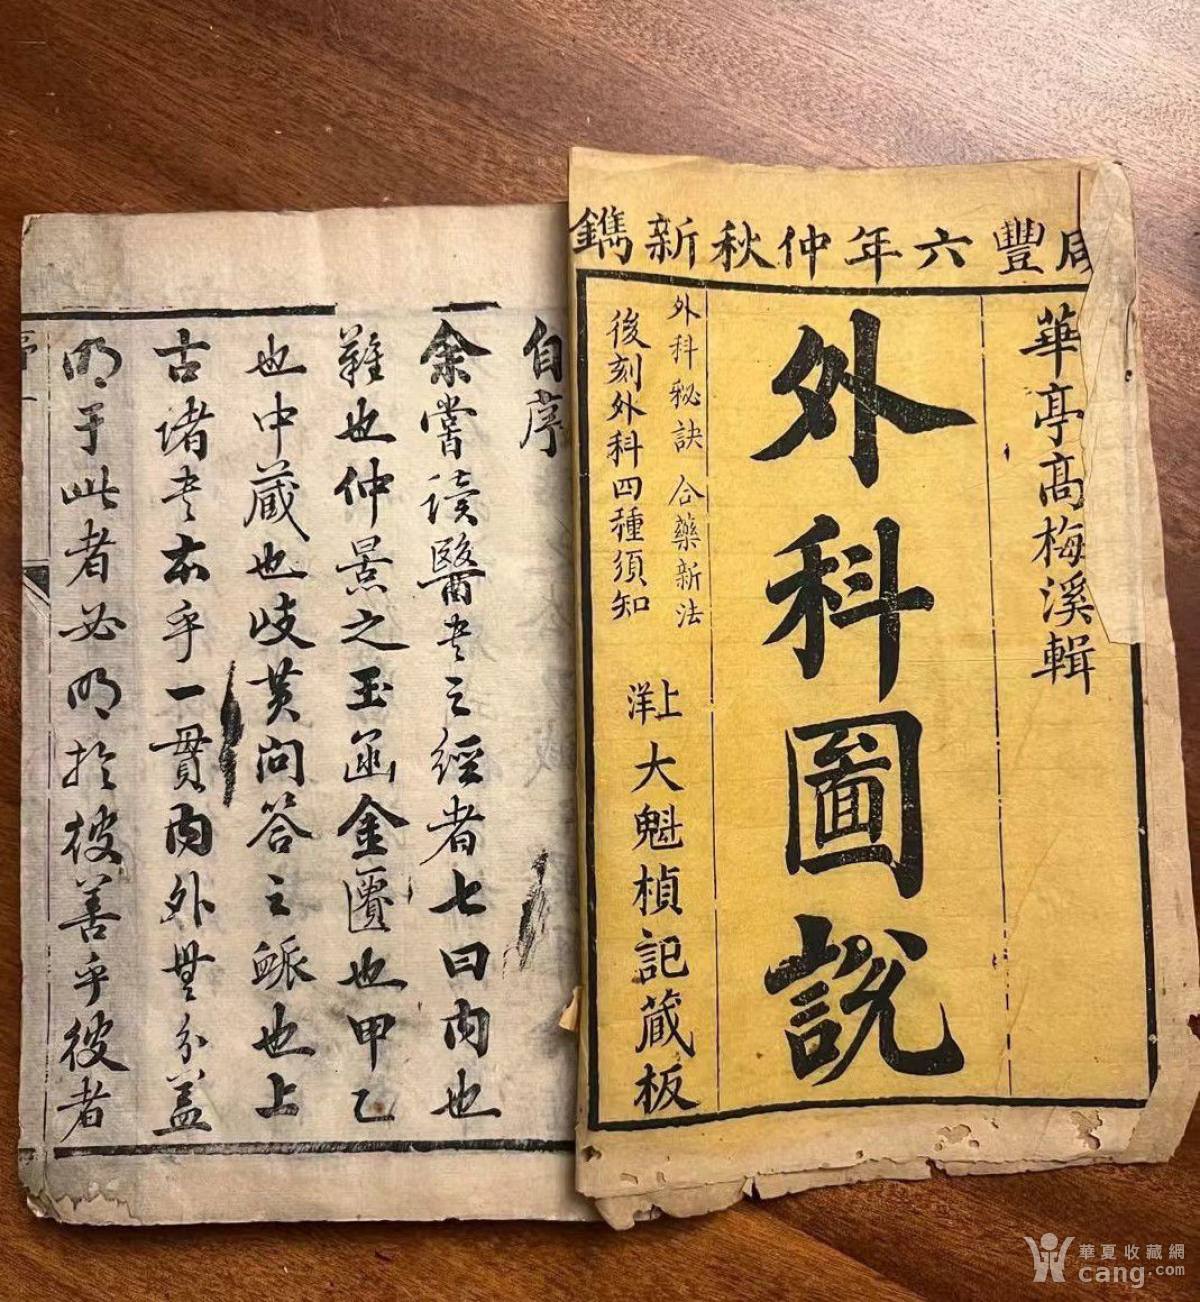 咸豐六年仲秋新鐫
華亭髙梅溪輯
外科圖說
外科秘訣 合藥新法
後刻外科四種須知
上洋大魁楨記蔵板
自序
余嘗讀醫書之經者七曰內也
難也仲景之玉函金匱也甲乙
也中蔵也岐黃問答之衇也上
古諸書本乎一貫內外無分蓋
明于此者必明於彼善乎彼者
序 一
華夏收藏網
cang.com